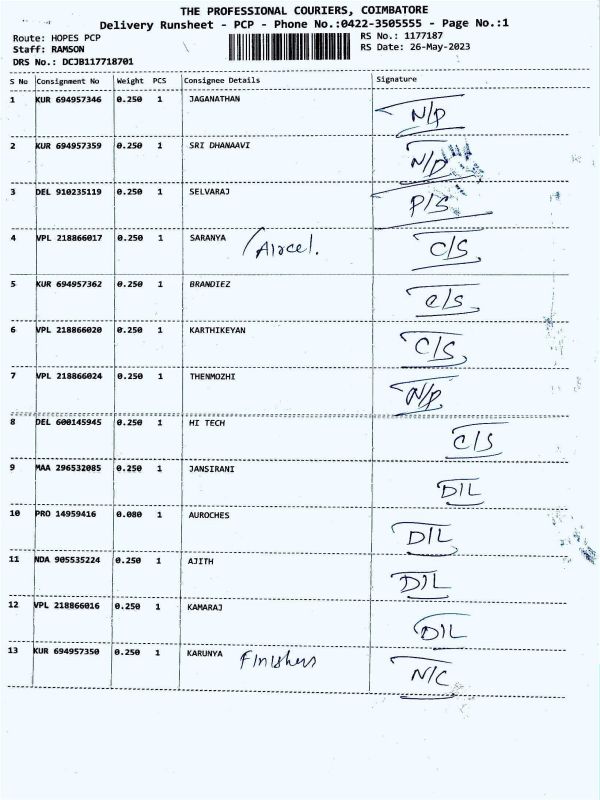 THE PROFESSIONAL COURIERS, COIMBATORE
Delivery Runsheet - PCP - Phone No.:0422-3505555 - Page No.:1
Route: HOPES PCP RS No.: 1177187
Staff: RAMSON RS Date: 26-May-2023
DRS No.: DCJB117718701
S No Consignment No Weight PCS Consignee Details Signature
1 KUR 694957346 0.250 1 JAGANATHAN N/P
2 KUR 694957359 0.250 1 SRI DHANAAVI N/P
3 DEL 910235119 0.250 1 SELVARAJ P/S
4 VPL 218866017 0.250 1 SARANYA (Aircel. C/S
5 KUR 694957362 0.250 1 BRANDIEZ C/S
6 VPL 218866020 0.250 1 KARTHIKEYAN C/S
7 VPL 218866024 0.250 1 THENMOZHI N/P
8 DEL 600145945 0.250 1 HI TECH C/S
9 MAA 296532085 0.250 1 JANSIRANI D/L
10 PRO 14959416 0.080 1 AUROCHES D/L
11 NDA 905535224 0.250 1 AJITH D/L
12 VPL 218866016 0.250 1 KAMARAJ D/L
13 KUR 694957350 0.250 1 KARUNYA Finishers N/C